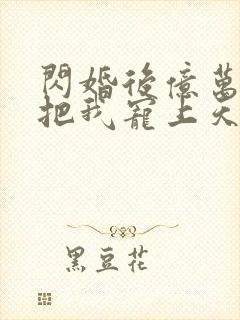 閃婚後億萬
把我寵上天
黑豆花